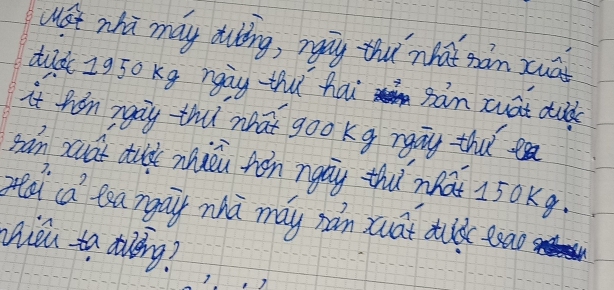 Một nhà máy đường, ngày thứ nhất sản xuất
được 1950 kg ngày thứ hai sản xuất được
ít hơn ngày thứ nhất 900 kg ngày thứ ba
sản xuất được nhiều hơn ngày thứ nhất 150 kg.
Hỏi cả ba ngày nhà máy sản xuất được bao
nhiêu tạ đường?